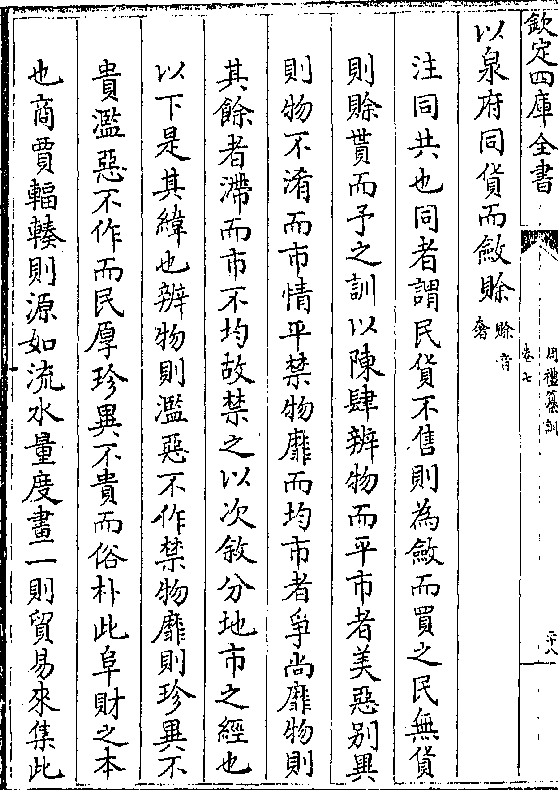 欽定四庫全書
周禮纂訓
卷七
二十八
以泉府同貨而斂賒賒音奢
注同共也同者謂民貨不售則為斂而買之民無貨
則賒貰而予之訓以陳肆辨物而平市者美惡别異
則物不淆而市情平禁物靡而均市者爭尚靡物則
其餘者滯而市不均故禁之以次敘分地市之經也
以下是其緯也辨物則濫惡不作禁物靡則珍異不
貴濫惡不作而民厚珍異不貴而俗朴此阜財之本
也商賈輻輳則源如流水量度畫一則貿易來集此